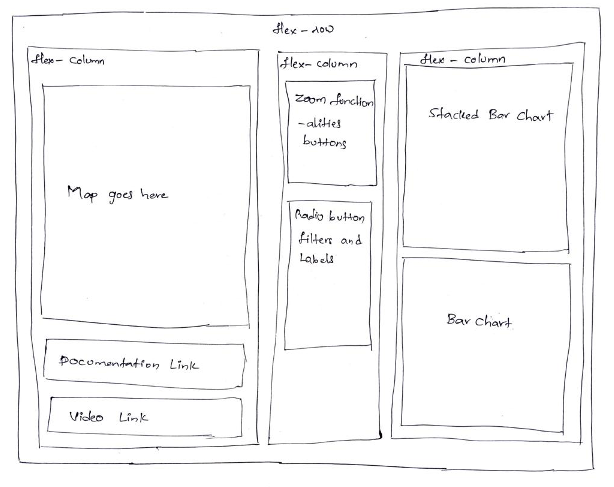 flex-row
flex-column
Map goes here
Documentation Link
Video Link
flex-column
Zoom function
-alities
buttons
Radio button
filters and
Labels
flex-column
Stacked Bar Chart
Bar Chart